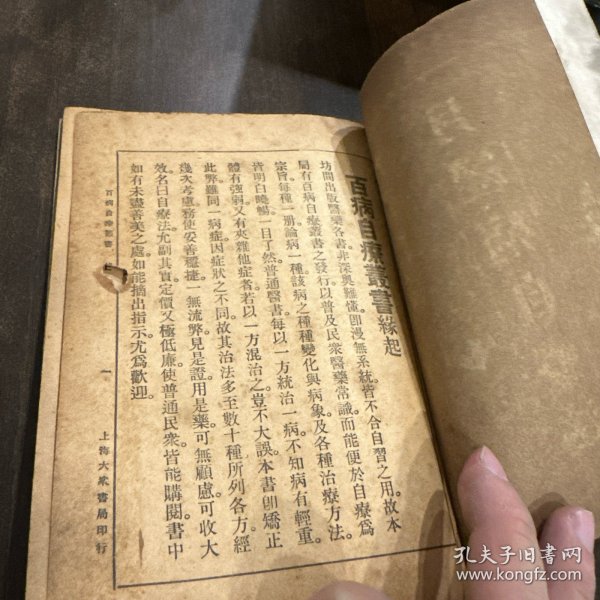 百病自療叢書緣起
坊間出版醫藥各書非深奧難懂卽漫無系統皆不合自習之用故本
局有百病自療叢書之發行以普及民衆醫藥常識而能便於自療爲
宗旨。每種一册論病一種該病之種種變化與病象及各種治療方法。
皆明白曉暢一目了然普通醫書每以一方統治一病不知病有輕重。
體有强弱又有夾雜他症者若以一方混治之豈不大誤本書卽矯正
此弊雖同一病症因症狀之不同故其治法多至數十種所列各方經
幾次考慮務使妥善穩捷一無流弊見是證用是藥可無顧慮可收大
效名曰自療法允副其實定價又極低廉使普通民衆皆能購閱書中
如有未盡善美之處如能摘出指示尤爲歡迎。
百病自療叢書
一
上海大衆書局印行
孔夫子旧书网
www.kongfz.com